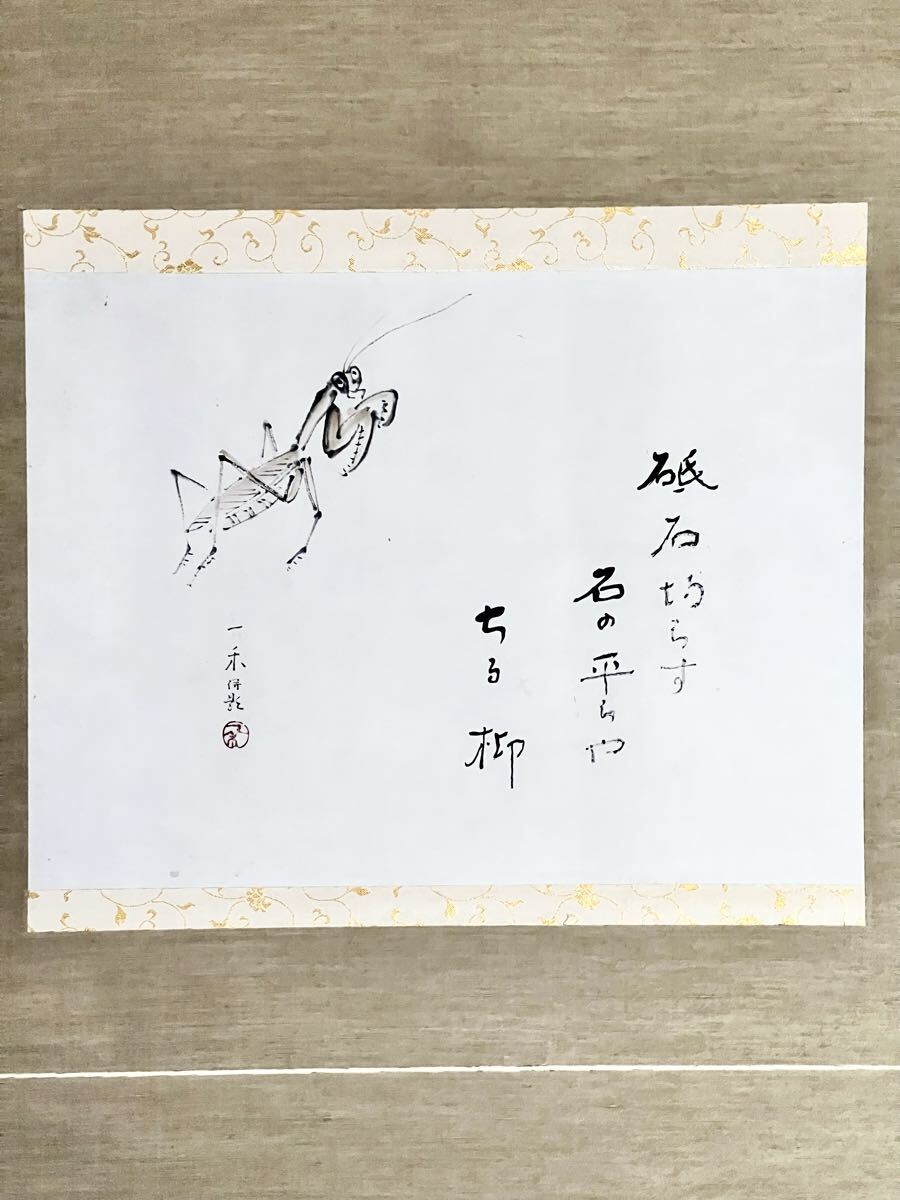 砥石坊らす
石の平らや
ちる柳
一禾併題